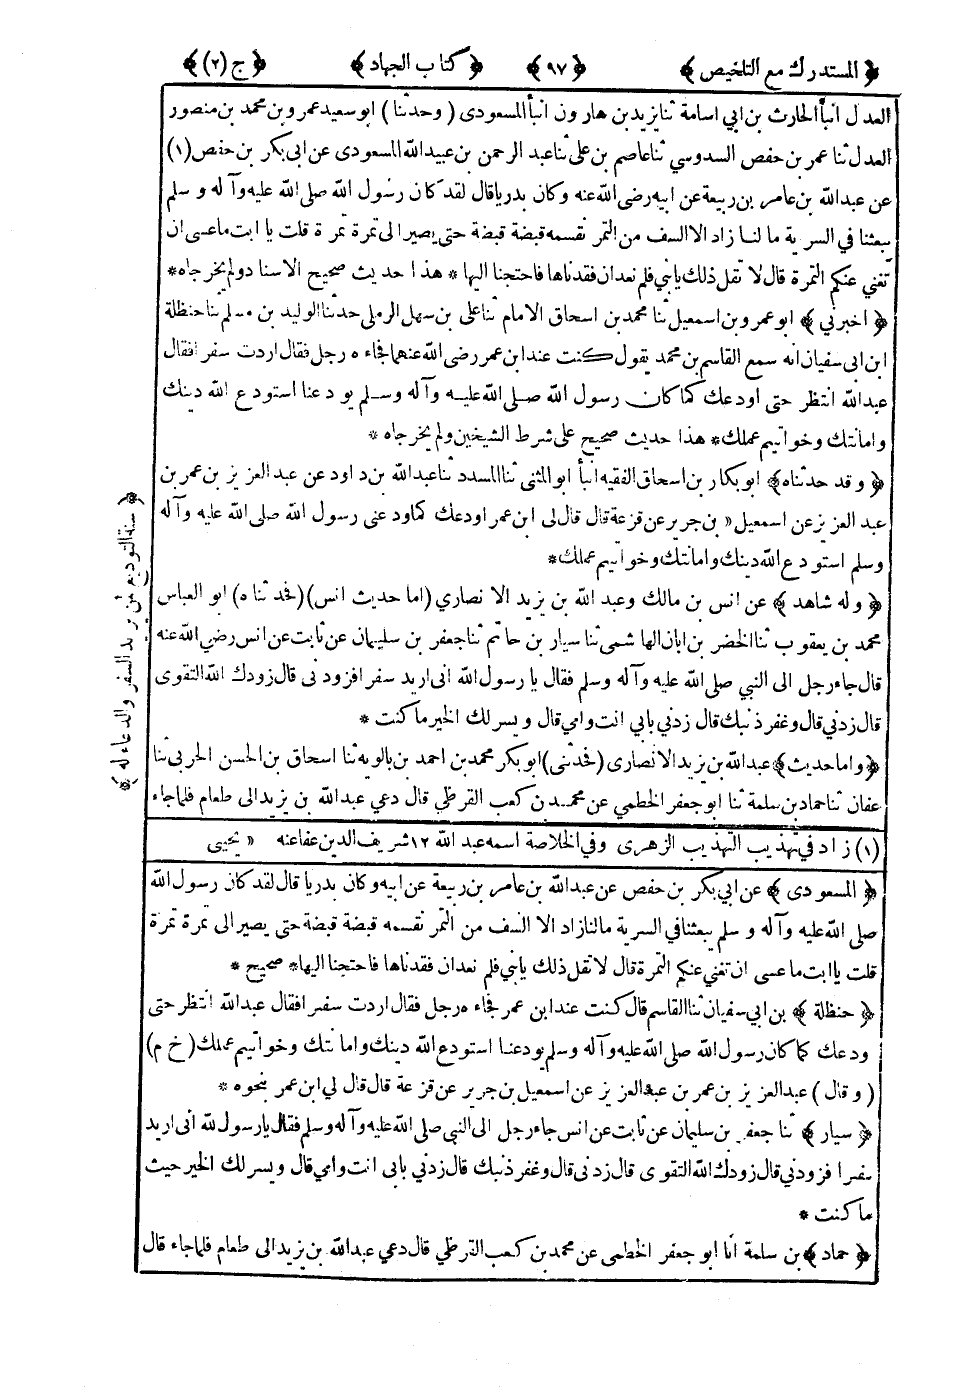 ﴿ المستدرك مع التلخيص ﴾ ﴿ ٩٧ ﴾ ﴿ كتاب الجهاد ﴾ ﴿ ج (٢) ﴾
العدل انبأ الحارث بن ابي اسامة ثنا يزيد بن هارون انبأ المسعودى ( وحدثنا ) ابو سعيد عمرو بن محمد بن منصور
العدل ثنا عمر بن حفص السدوسي ثنا عاصم بن على ثنا عبد الرحمن بن عبيد الله المسعودى عن ابى بكر بن حفص (١)
عن عبدالله بن عامر بن ربيعة عن ابيه رضى الله عنه وكان بدريا قال لقد كان رسول الله صلى الله عليه وآله وسلم
يبعثنا في السرية ما لنا زاد الا السف من التمر نقسمه قبضة قبضة حتى يصير الى تمرة تمرة قلت يا ابت ما عسى ان
تغني عنكم التمرة قال لا تقل ذلك يا بني فلم نعد ان فقدناها فاحتجنا اليها * هذا حديث صحيح الاسناد ولم يخرجاه *
﴿ اخبرني ﴾ ابو عمرو بن اسمعيل ثنا محمد بن اسحاق الامام ثنا على بن سهل الرملى حدثنا الوليد بن مسلم ثنا حنظلة
ابن ابى سفيان انه سمع القاسم بن محمد يقول كنت عند ابن عمر رضى الله عنهما فجاءه رجل فقال اردت سفرا فقال
عبدالله انتظر حتى اودعك كما كان رسول الله صلى الله عليه وآله وسلم يودعنا استودع الله دينك
وامانتك وخواتيم عملك * هذا حديث صحيح على شرط الشيخين ولم يخرجاه *
﴿ وقد حدثناه ﴾ ابو بكار بن اسحاق الفقيه انبأ ابو المثنى ثنا المسدد ثنا عبدالله بن داود عن عبد العزيز بن عمر بن
عبد العزيز عن اسمعيل « بن جرير عن قزعة قال قال لى ابن عمر اودعك كما ودعنى رسول الله صلى الله عليه وآله
وسلم استودع الله دينك وامانتك وخواتيم عملك *
﴿ وله شاهد ﴾ عن انس بن مالك وعبد الله بن يزيد الانصاري (اما حديث انس) (فحدثناه) ابو العباس
محمد بن يعقوب ثنا الخضر بن ابان الهاشمى ثنا سيار بن حاتم ثنا جعفر بن سليمان عن ثابت عن انس رضي الله عنه
قال جاء رجل الى النبي صلى الله عليه وآله وسلم فقال يا رسول الله انى اريد سفرا فزودنى قال زودك الله التقوى
قال زدني قال وغفر ذنبك قال زدني بابي انت وامي قال ويسر لك الخير ما كنت *
﴿ واما حديث ﴾ عبدالله بن يزيد الانصارى ( فحدثنى ) ابو بكر محمد بن احمد بن بالويه ثنا اسحاق بن الحسن الحربى ثنا
عفان ثنا حماد بن سلمة ثنا ابو جعفر الخطمي عن محمد بن كعب القرظي قال دعي عبدالله بن يزيد الى طعام فلما جاء
﴿ سنة التوديع لمن يريد السفر والدعاء له ﴾
(١) زاد في تهذيب التهذيب الزهرى وفي الخلاصة اسمه عبد الله ١٢ شريف الدين عفا عنه « يحيى
﴿ المسعودى ﴾ عن ابي بكر بن حفص عن عبدالله بن عامر بن ربيعة عن ابيه وكان بدريا قال لقد كان رسول الله
صلى الله عليه وآله وسلم يبعثنا في السرية مالنا زاد الا السف من التمر نقسمه قبضة قبضة حتى يصير الى تمرة تمرة
قلت يا ابت ما عسى ان تغني عنكم التمرة قال لا تقل ذلك يا بني فلم نعد ان فقدناها فاحتجنا اليها * صحيح *
﴿ حنظلة ﴾ بن ابي سفيان ثنا القاسم قال كنت عند ابن عمر فجاءه رجل فقال اردت سفرا فقال عبدالله انتظر حتى
ودعك كما كان رسول الله صلى الله عليه وآله وسلم يودعنا استودع الله دينك وامانتك وخواتيم عملك ( خ م )
( وقال ) عبد العزيز بن عمر بن عبد العزيز عن اسمعيل بن جرير عن قزعة قال قال لي ابن عمر بنحوه *
﴿ سيار ﴾ ثنا جعفر بن سليمان عن ثابت عن انس جاء رجل الى النبي صلى الله عليه وآله وسلم فقال يا رسول لله انى اريد
سفرا فزودني قال زودك الله التقوى قال زدنى قال وغفر ذنبك قال زدني بابى انت وامي قال ويسر لك الخير حيث
ما كنت *
﴿ حماد ﴾ بن سلمة انا ابو جعفر الخطمي عن محمد بن كعب القرظي قال دعي عبدالله بن يزيد الى طعام فلما جاء قال